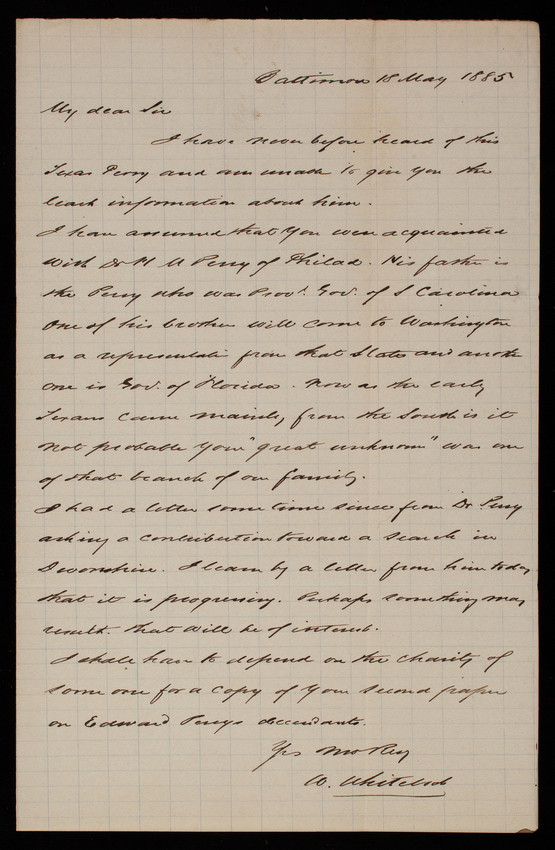 Baltimore 18 May 1885
My dear Sir
I have never before heard of this
Texas Perry and am unable to give you the
least information about him.
I have assumed that you were acquainted
with Dr H M Perry of Philad. His father is
the Perry who was Provl. Gov. of S Carolina
One of his brother will come to Washington
as a representati from that State and another
one is Gov. of Florida. Now as the early
Texans came mainly from the South is it
not probable your "great unknown" was one
of that branch of our family.
I had a letter some time since from Dr. Perry
asking a contribution toward a search in
Devonshire. I learn by a letter from him today
that it is progressing. Perhaps something may
result. that will be of interest.
I shall have to depend on the charity of
some one for a copy of your second paper
on Edward Perrys decendants.
Yrs
W. Whitelock